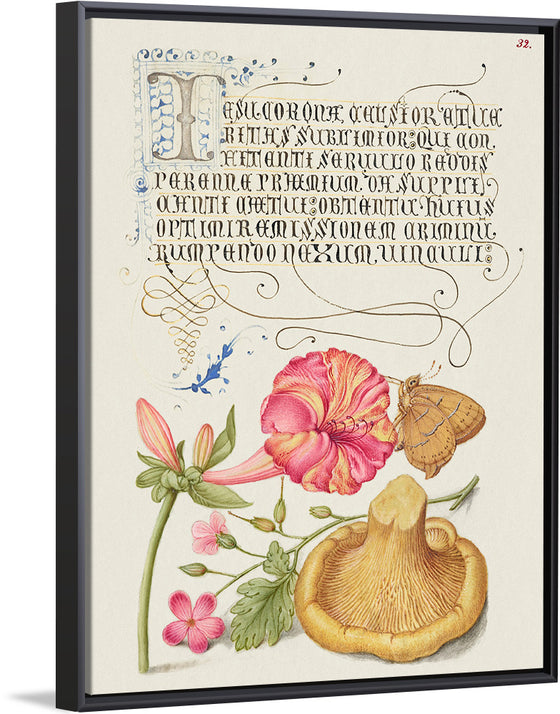 32.
IESU. CORONA CELSIOR, ET VE
RITAS SUBLIMIOR: QUI CON
FITENTI SERVULO REDDIS
PERENNE PRÆMIUM. DA SUPPLI
CANTI CÆTUI: OBTENTU HUIUS
OPTIMI REMISSIONEM CRIMINU
RUMPENDO NEXUM, VINCULI: